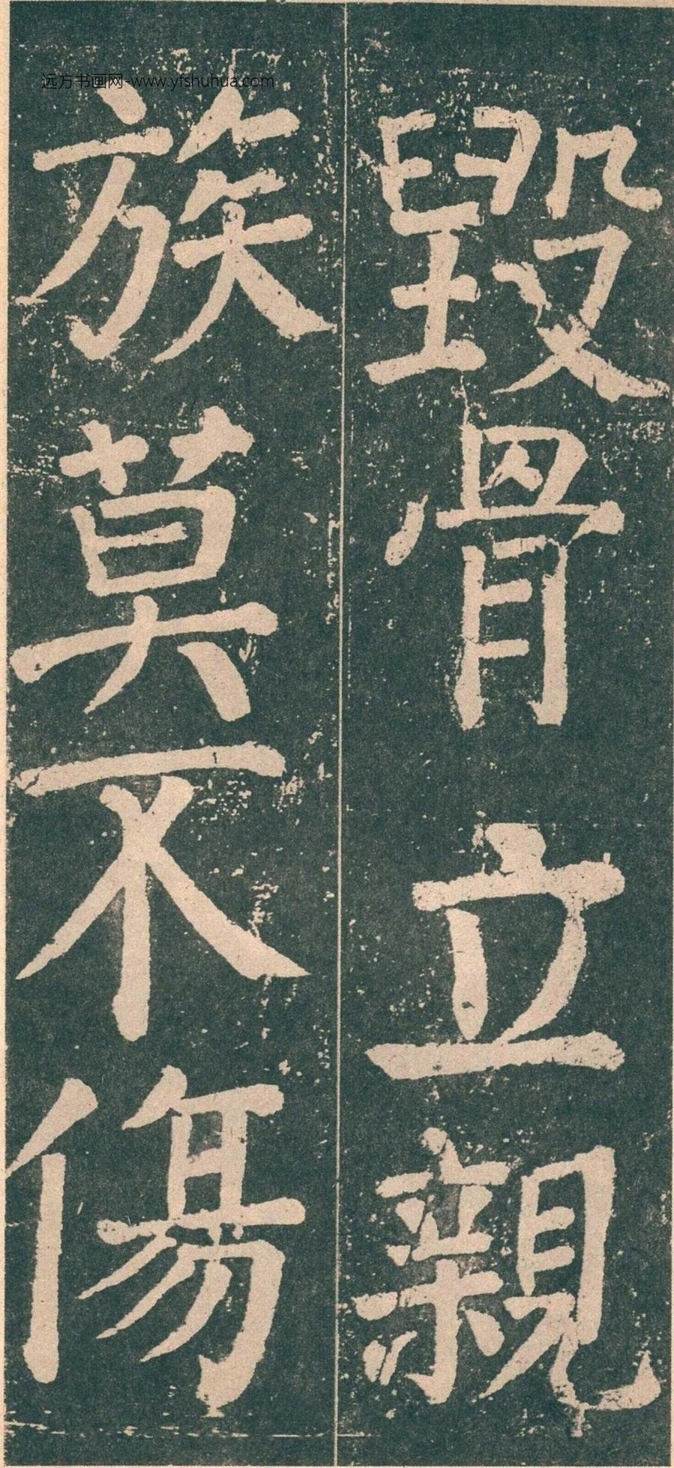 远方书画网-www.yfshuhua.com
毀骨立親
族莫不傷